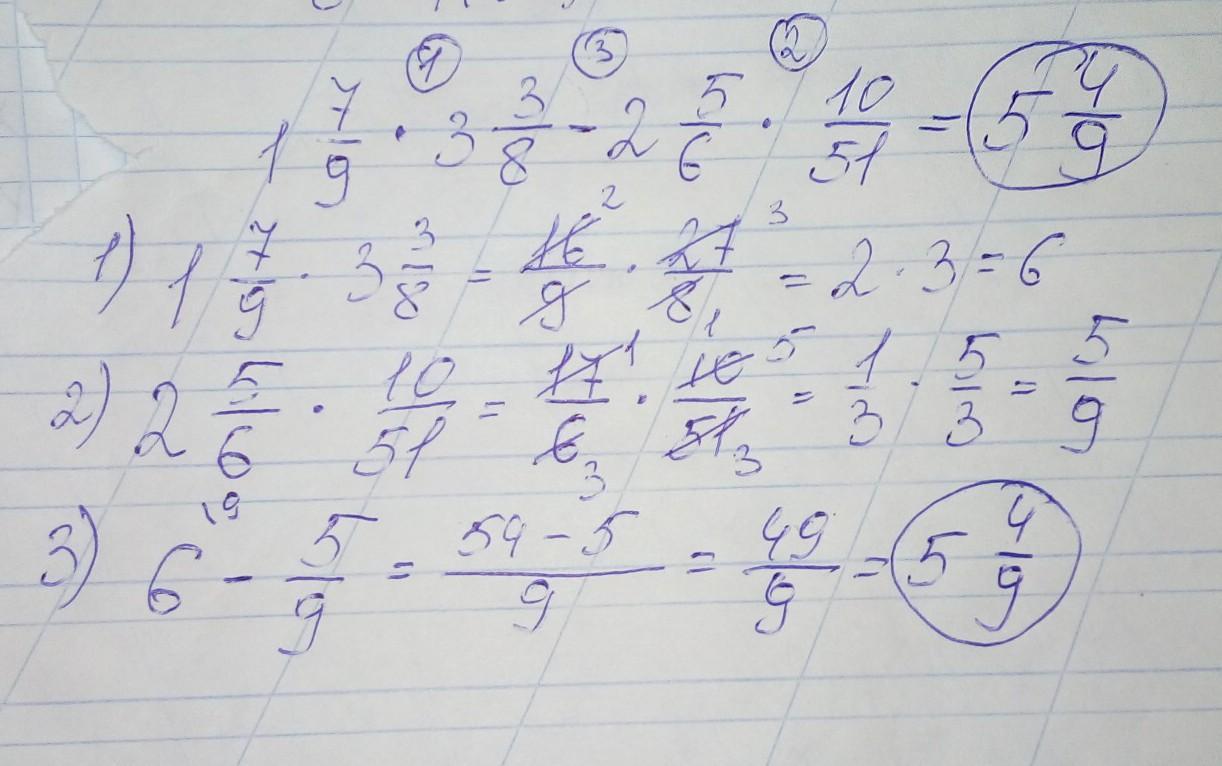 ① ③ ②
1 7/9 · 3 3/8 - 2 5/6 · 10/51 = 5 4/9
1) 1 7/9 · 3 3/8 = 16²/9 · 27³/8₁ = 2 · 3 = 6
2) 2 5/6 · 10/51 = 17¹/6₃ · 10⁵/51₃ = 1/3 · 5/3 = 5/9
3) 6 \9 - 5/9 = 54-5/9 = 49/9 = 5 4/9